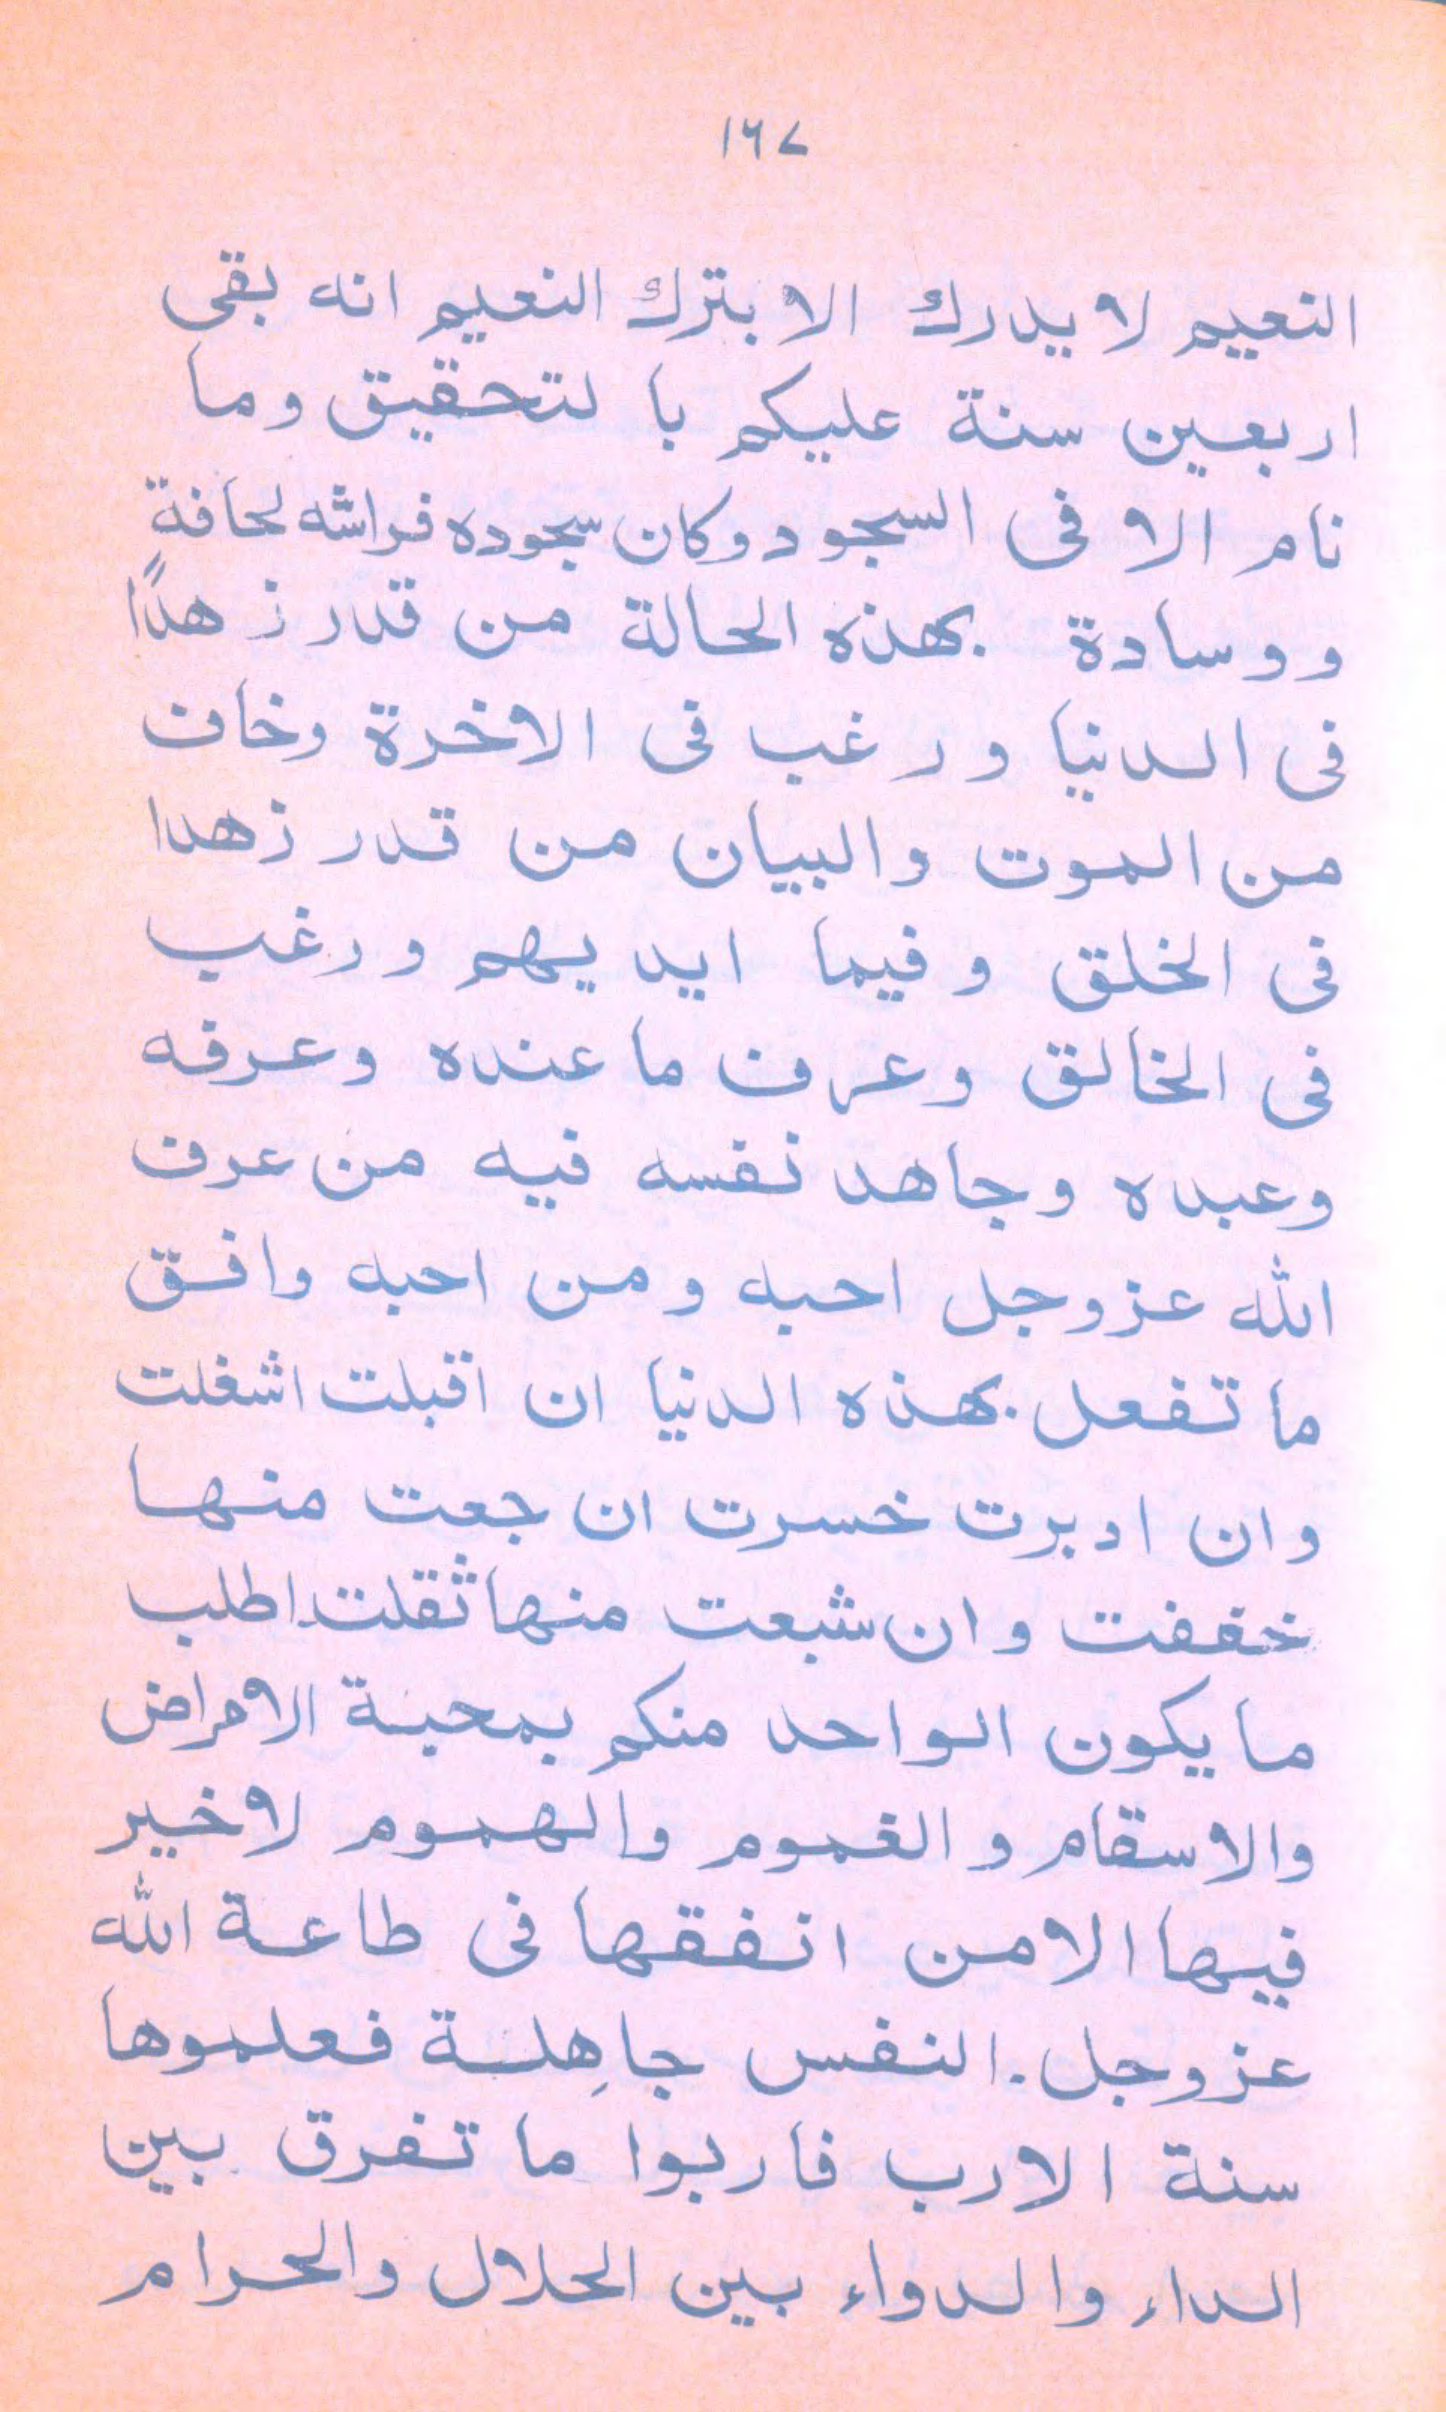 ١٦٧
النعيم لا يدرك الا بترك النعيم انه بقى
اربعين سنة عليكم با لتحقيق وما
نام الا فى السجود وكان سجوده فراشه لحافةٍ
ووسادة بهذه الحالة من قدر زهدًا
فى الدنيا ورغب فى الاخرة وخاف
من الموت والبيان من قدر زهدا
فى الخلق وفيما ايديهم ورغب
فى الخالق وعرف ما عنده وعرفه
وعبده وجاهد نفسه فيه من عرف
الله عزوجل احبه ومن احبه وافق
ما تفعل بهذه الدنيا ان اقبلت اشغلت
وان ادبرت خسرت ان جعت منها
خففت وان شبعت منها ثقلت اطلب
ما يكون الواحد منكم بمحبة الامراض
والاسقام والغموم والهموم لا خير
فيها الا من انفقها فى طاعة الله
عزوجل. النفس جاهِلة فعلموها
سنة الارب فاربوا ما تفرق بين
الداء والدواء بين الحلال والحرام